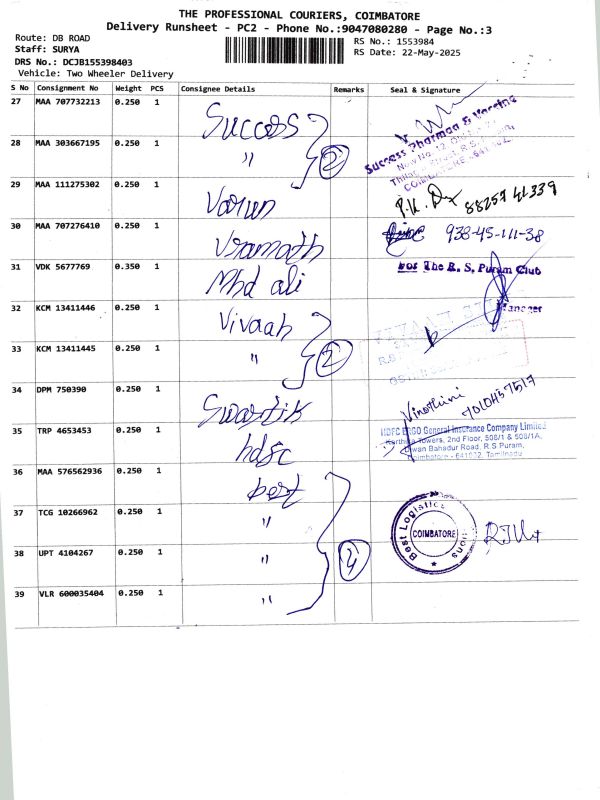 THE PROFESSIONAL COURIERS, COIMBATORE
Delivery Runsheet - PC2 - Phone No.:9047080280 - Page No.:3
Route: DB ROAD
RS No.: 1553984
Staff: SURYA
RS Date: 22-May-2025
DRS No.: DCJB155398403
Vehicle: Two Wheeler Delivery
S No Consignment No Weight PCS Consignee Details Remarks Seal & Signature
27 MAA 707732213 0.250 1 Success
28 MAA 303667195 0.250 1 " 2
Success Pharma & Vaccine
COIMBATORE
29 MAA 111275302 0.250 1 Varun 88257 41339
30 MAA 707276410 0.250 1 938-45-111-38
31 VDK 5677769 0.350 1 Mhd ali For The R. S. Puram Club
Manager
32 KCM 13411446 0.250 1 Vivaah
33 KCM 13411445 0.250 1 " 2
34 DPM 750390 0.250 1 Swastik Vinothini
35 TRP 4653453 0.250 1 hdfc
HDFC ERGO General Insurance Company Limited
Towers, 2nd Floor, 508/1 & 508/1A,
Diwan Bahadur Road, R.S Puram,
Coimbatore - 641002, Tamilnadu
36 MAA 576562936 0.250 1 best
37 TCG 10266962 0.250 1 "
38 UPT 4104267 0.250 1 " 4
39 VLR 600035404 0.250 1 "
Best Logistics
COIMBATORE